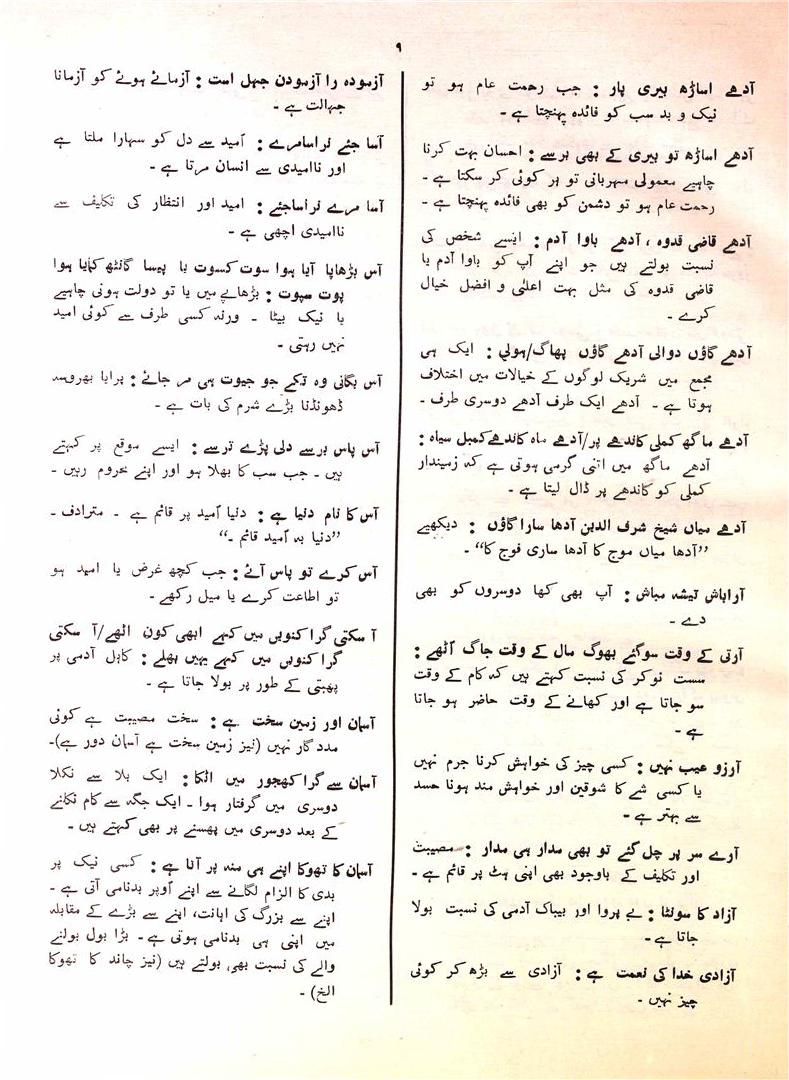 ۹
آدھے اساڑھ بیری پار : جب رحمت عام ہو تو
نیک و بد سب کو فائدہ پہنچتا ہے ۔
آدھے اساڑھ تو بیری کے بھی برسے : احسان بہت کرنا
چاہیے معمولی مہربانی تو ہر کوئی کر سکتا ہے ۔
رحمت عام ہو تو دشمن کو بھی فائدہ پہنچتا ہے ۔
آدھے قاضی قدوہ ، آدھے باوا آدم : ایسے شخص کی
نسبت بولتے ہیں جو اپنے آپ کو باوا آدم یا
قاضی قدوہ کی مثل بہت اعلیٰ و افضل خیال
کرے ۔
آدھے گاؤں دوالی آدھے گاؤں پھاگ/ہولی : ایک ہی
مجمع میں شریک لوگوں کے خیالات میں اختلاف
ہوتا ہے ۔ آدھے ایک طرف آدھے دوسری طرف ۔
آدھے ماگھ کملی کاندھے پر/آدھے ماہ کاندھے کمبل سیاہ :
آدھے ماگھ میں اتنی گرمی ہوتی ہے کہ زمیندار
کملی کو کاندھے پر ڈال لیتا ہے ۔
آدھے میاں شیخ شرف الدین آدھا سارا گاؤں : دیکھیے
”آدھا میاں موج کا آدھا ساری فوج کا“ ۔
آراباش تیشہ مباش : آپ بھی کھا دوسروں کو بھی
دے ۔
آرتی کے وقت سوگئے بھوگ مال کے وقت جاگ اٹھے :
سست نوکر کی نسبت کہتے ہیں کہ کام کے وقت
سو جاتا ہے اور کھانے کے وقت حاضر ہو جاتا
ہے ۔
آرزو عیب نہیں : کسی چیز کی خواہش کرنا جرم نہیں
یا کسی شے کا شوقین اور خواہش مند ہونا حسد
سے بہتر ہے ۔
آرے سر پر چل گئے تو بھی مدار ہی مدار : مصیبت
اور تکلیف کے باوجود بھی اپنی ہٹ پر قائم ہے ۔
آزاد کا سونٹا : بے پروا اور بیباک آدمی کی نسبت بولا
جاتا ہے ۔
آزادی خدا کی نعمت ہے : آزادی سے بڑھ کر کوئی
چیز نہیں ۔
آزمودہ را آزمودن جہل است : آزمائے ہوئے کو آزمانا
جہالت ہے ۔
آسا جئے نراسا مرے : اُمید سے دل کو سہارا ملتا ہے
اور ناامیدی سے انسان مرتا ہے ۔
آسا مرے نراسا جئے : امید اور انتظار کی تکلیف سے
ناامیدی اچھی ہے ۔
آس بڑھاپا آیا ہوا سوت کسوت یا پیسا گانٹھ کمایا ہوا
پوت سپوت : بڑھاپے میں یا تو دولت ہونی چاہیے
یا نیک بیٹا ۔ ورنہ کسی طرف سے کوئی امید
نہیں رہتی ۔
آس بگانی وہ تکے جو جیوت ہی مر جائے : پرایا بھروسہ
ڈھونڈنا بڑے شرم کی بات ہے ۔
آس پاس برسے دلی پڑے ترسے : ایسے موقع پر کہتے
ہیں ۔ جب سب کا بھلا ہو اور اپنے محروم رہیں ۔
آس کا نام دنیا ہے : دنیا اُمید پر قائم ہے ۔ مترادف ۔
”دنیا بہ اُمید قائم ۔“
آس کرے تو پاس آئے : جب کچھ غرض یا امید ہو
تو اطاعت کرے یا میل رکھے ۔
آسکتی گرا کنویں میں کہے ابھی کون اٹھے/آسکتی
گرا کنویں میں کہے یہیں بھلے : کاہل آدمی پر
پھبتی کے طور پر بولا جاتا ہے ۔
آسمان اور زمین سخت ہے : سخت مصیبت ہے کوئی
مددگار نہیں (نیز زمین سخت ہے آسمان دور ہے)۔
آسمان سے گرا کھجور میں اٹکا : ایک بلا سے نکلا
دوسری میں گرفتار ہوا ۔ ایک جگہ سے کام نکانے
کے بعد دوسری میں پھسنے پر بھی کہتے ہیں ۔
آسمان کا تھوکا اپنے ہی منہ پر آتا ہے : کسی نیک پر
بدی کا الزام لگانے سے اپنے اُوپر بدنامی آتی ہے ۔
اپنے سے بزرگ کی اہانت، اپنے سے بڑے کے مقابلہ
میں اپنی ہی بدنامی ہوتی ہے ۔ بڑا بول بولنے
والے کی نسبت بھی بولتے ہیں (نیز چاند کا تھوکا
الخ) ۔